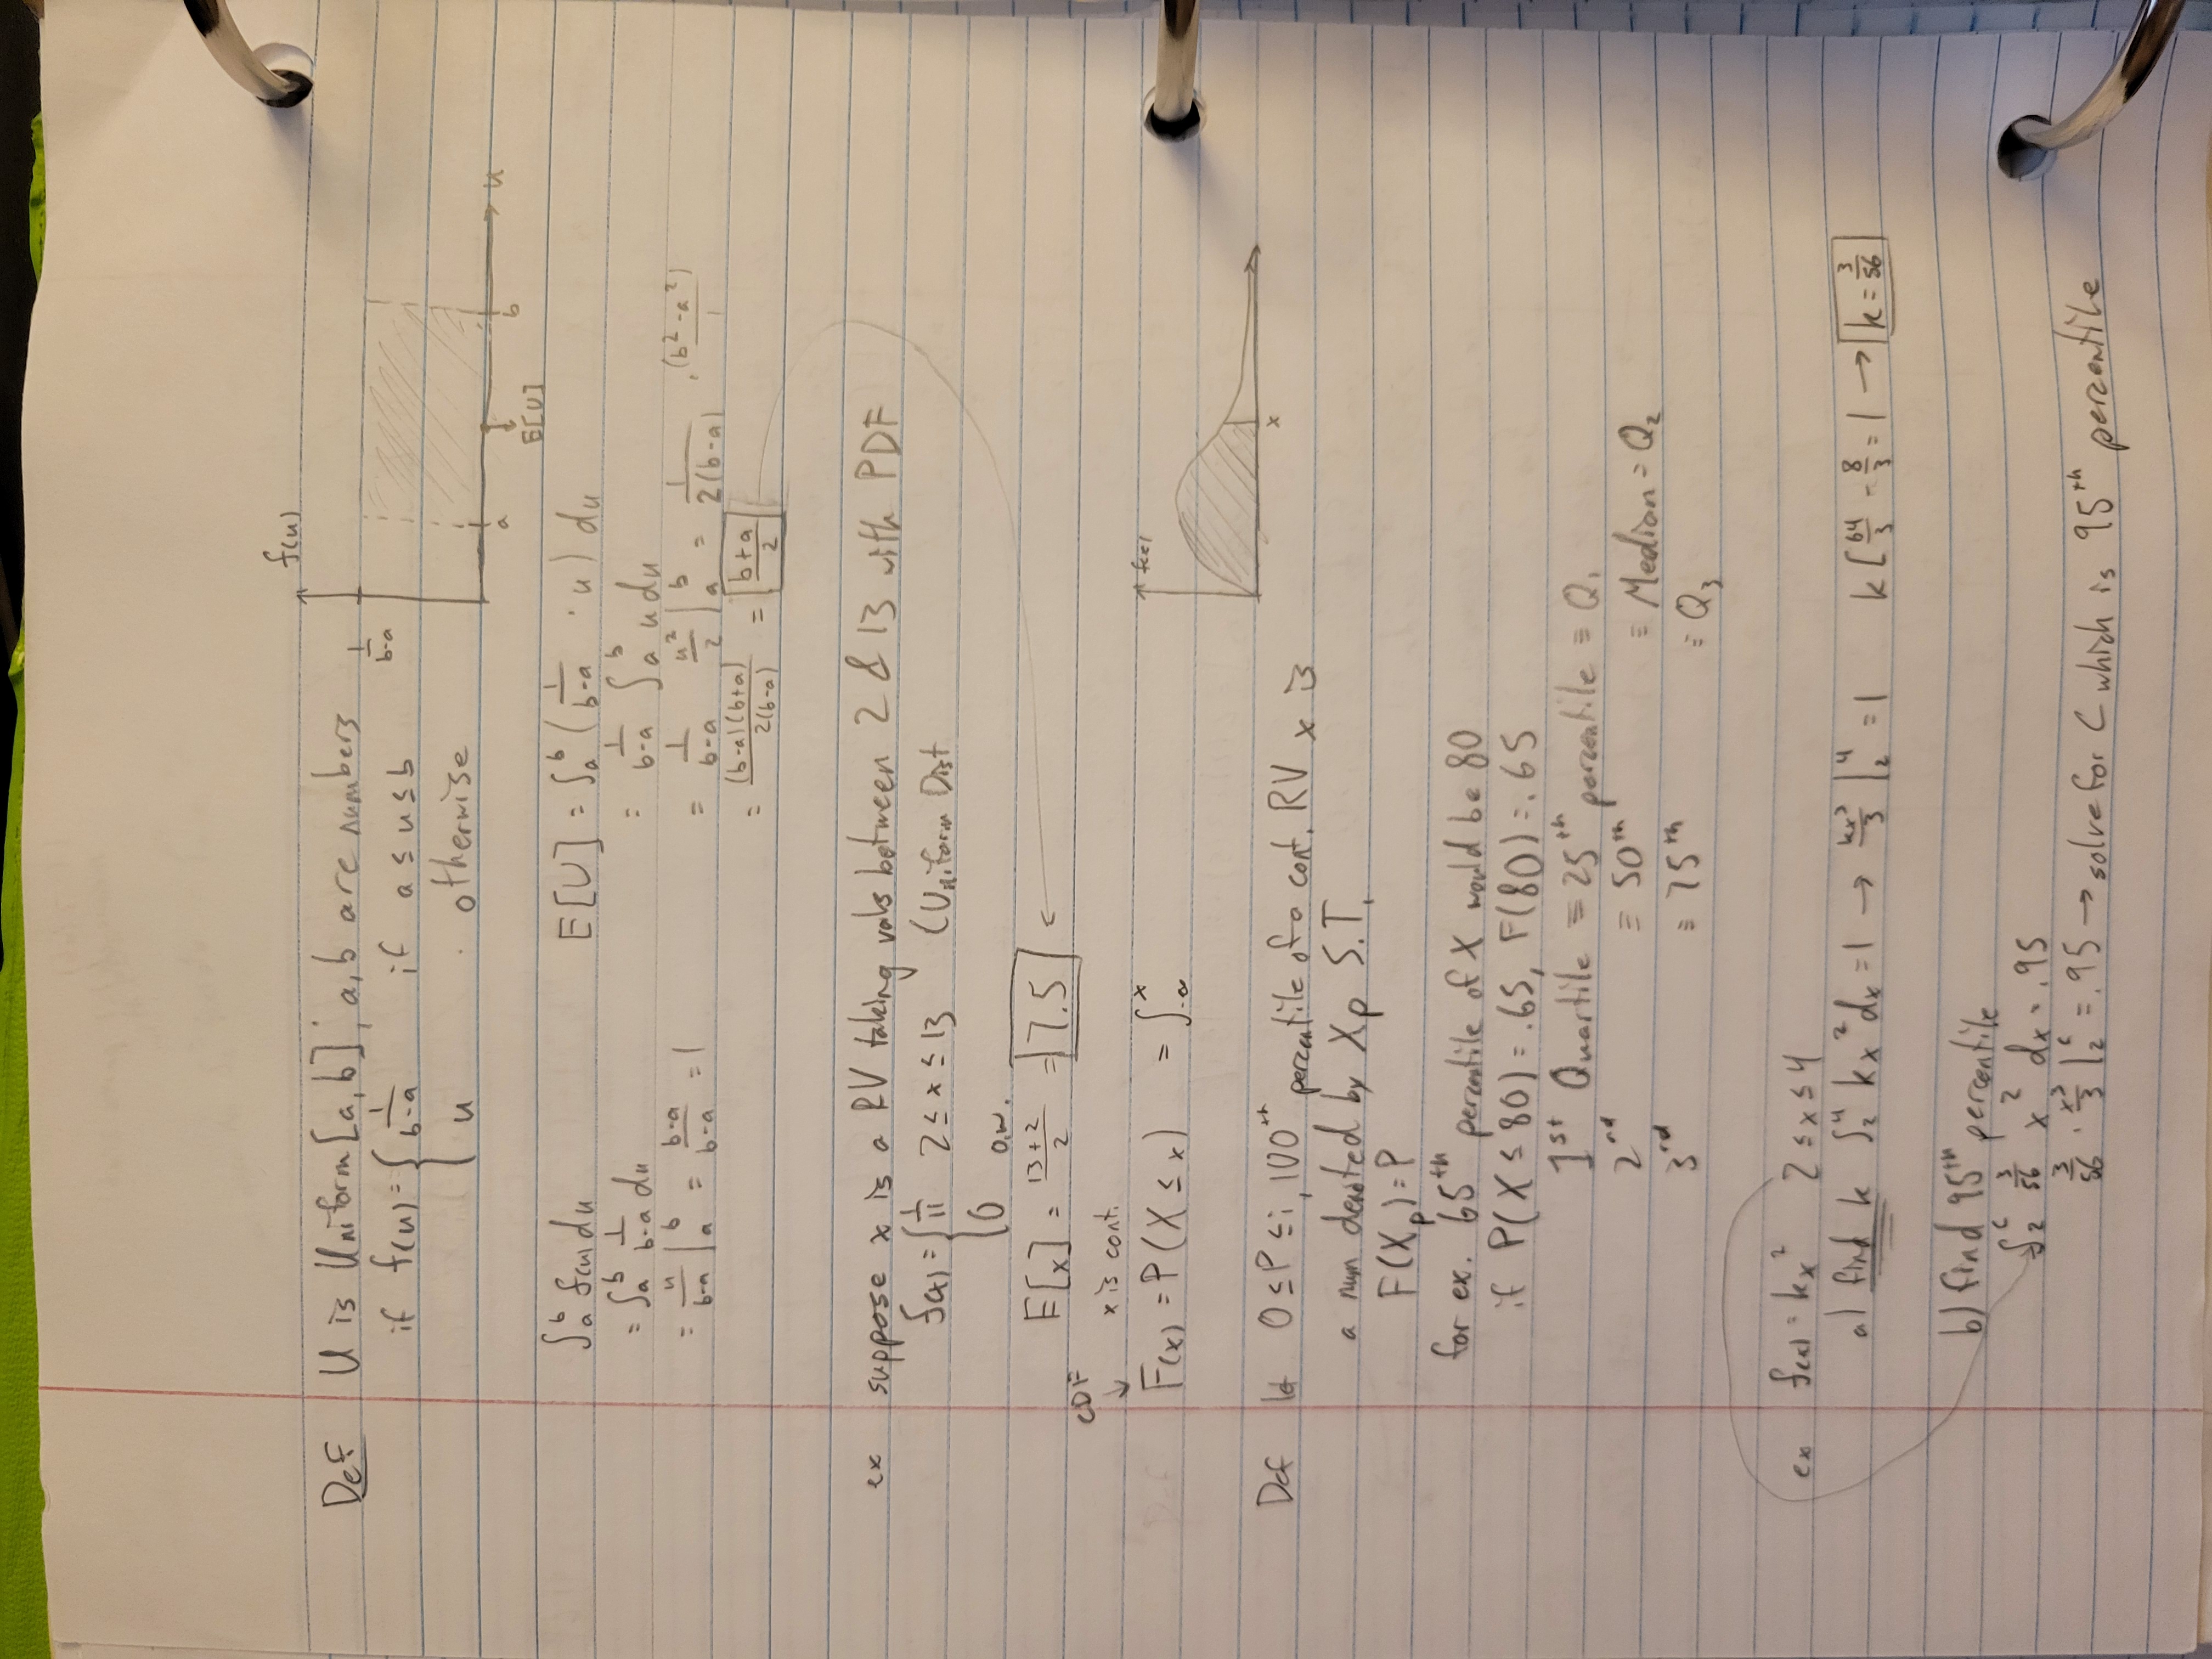 f(u)
Def U is Uniform[a,b]; a,b are numbers
1/(b-a)
if f(u) = { 1/(b-a) if a ≤ u ≤ b
u otherwise
a b u
E[U]
∫_a^b f(u) du
= ∫_a^b 1/(b-a) du
= u/(b-a) |_a^b = (b-a)/(b-a) = 1
E[U] = ∫_a^b (1/(b-a) · u) du
= 1/(b-a) ∫_a^b u du
= 1/(b-a) u²/2 |_a^b = 1/(2(b-a)) · (b²-a²)/1
= (b-a)(b+a)/(2(b-a)) = (b+a)/2
ex suppose x is a RV taking vals between 2 & 13 with PDF
f(x) = { 1/11 2 ≤ x ≤ 13 (Uniform Dist
0 o.w.
E[x] = (13+2)/2 = 7.5
CDF
↓ x is cont.
F(x) = P(X ≤ x) = ∫_-∞^x
f(x)
x
Def let 0 ≤ P ≤ i, 100th percentile of a cont. RV x is
a num denoted by Xp S.T.
F(Xp) = P
for ex. 65th percentile of X would be 80
if P(X ≤ 80) = .65, F(80) = .65
1st Quartile ≡ 25th percentile ≡ Q₁
2nd ≡ 50th ≡ Median = Q₂
3rd ≡ 75th ≡ Q₃
ex f(x) = kx² 2 ≤ x ≤ 4
a) find k ∫_2^4 kx² dx = 1 → kx³/3 |_2^4 = 1 k[64/3 - 8/3 = 1 → k = 3/56
b) find 95th percentile
∫_2^c 3/56 x² dx = .95
3/56 · x³/3 |_2^c = .95 → solve for C which is 95th percentile